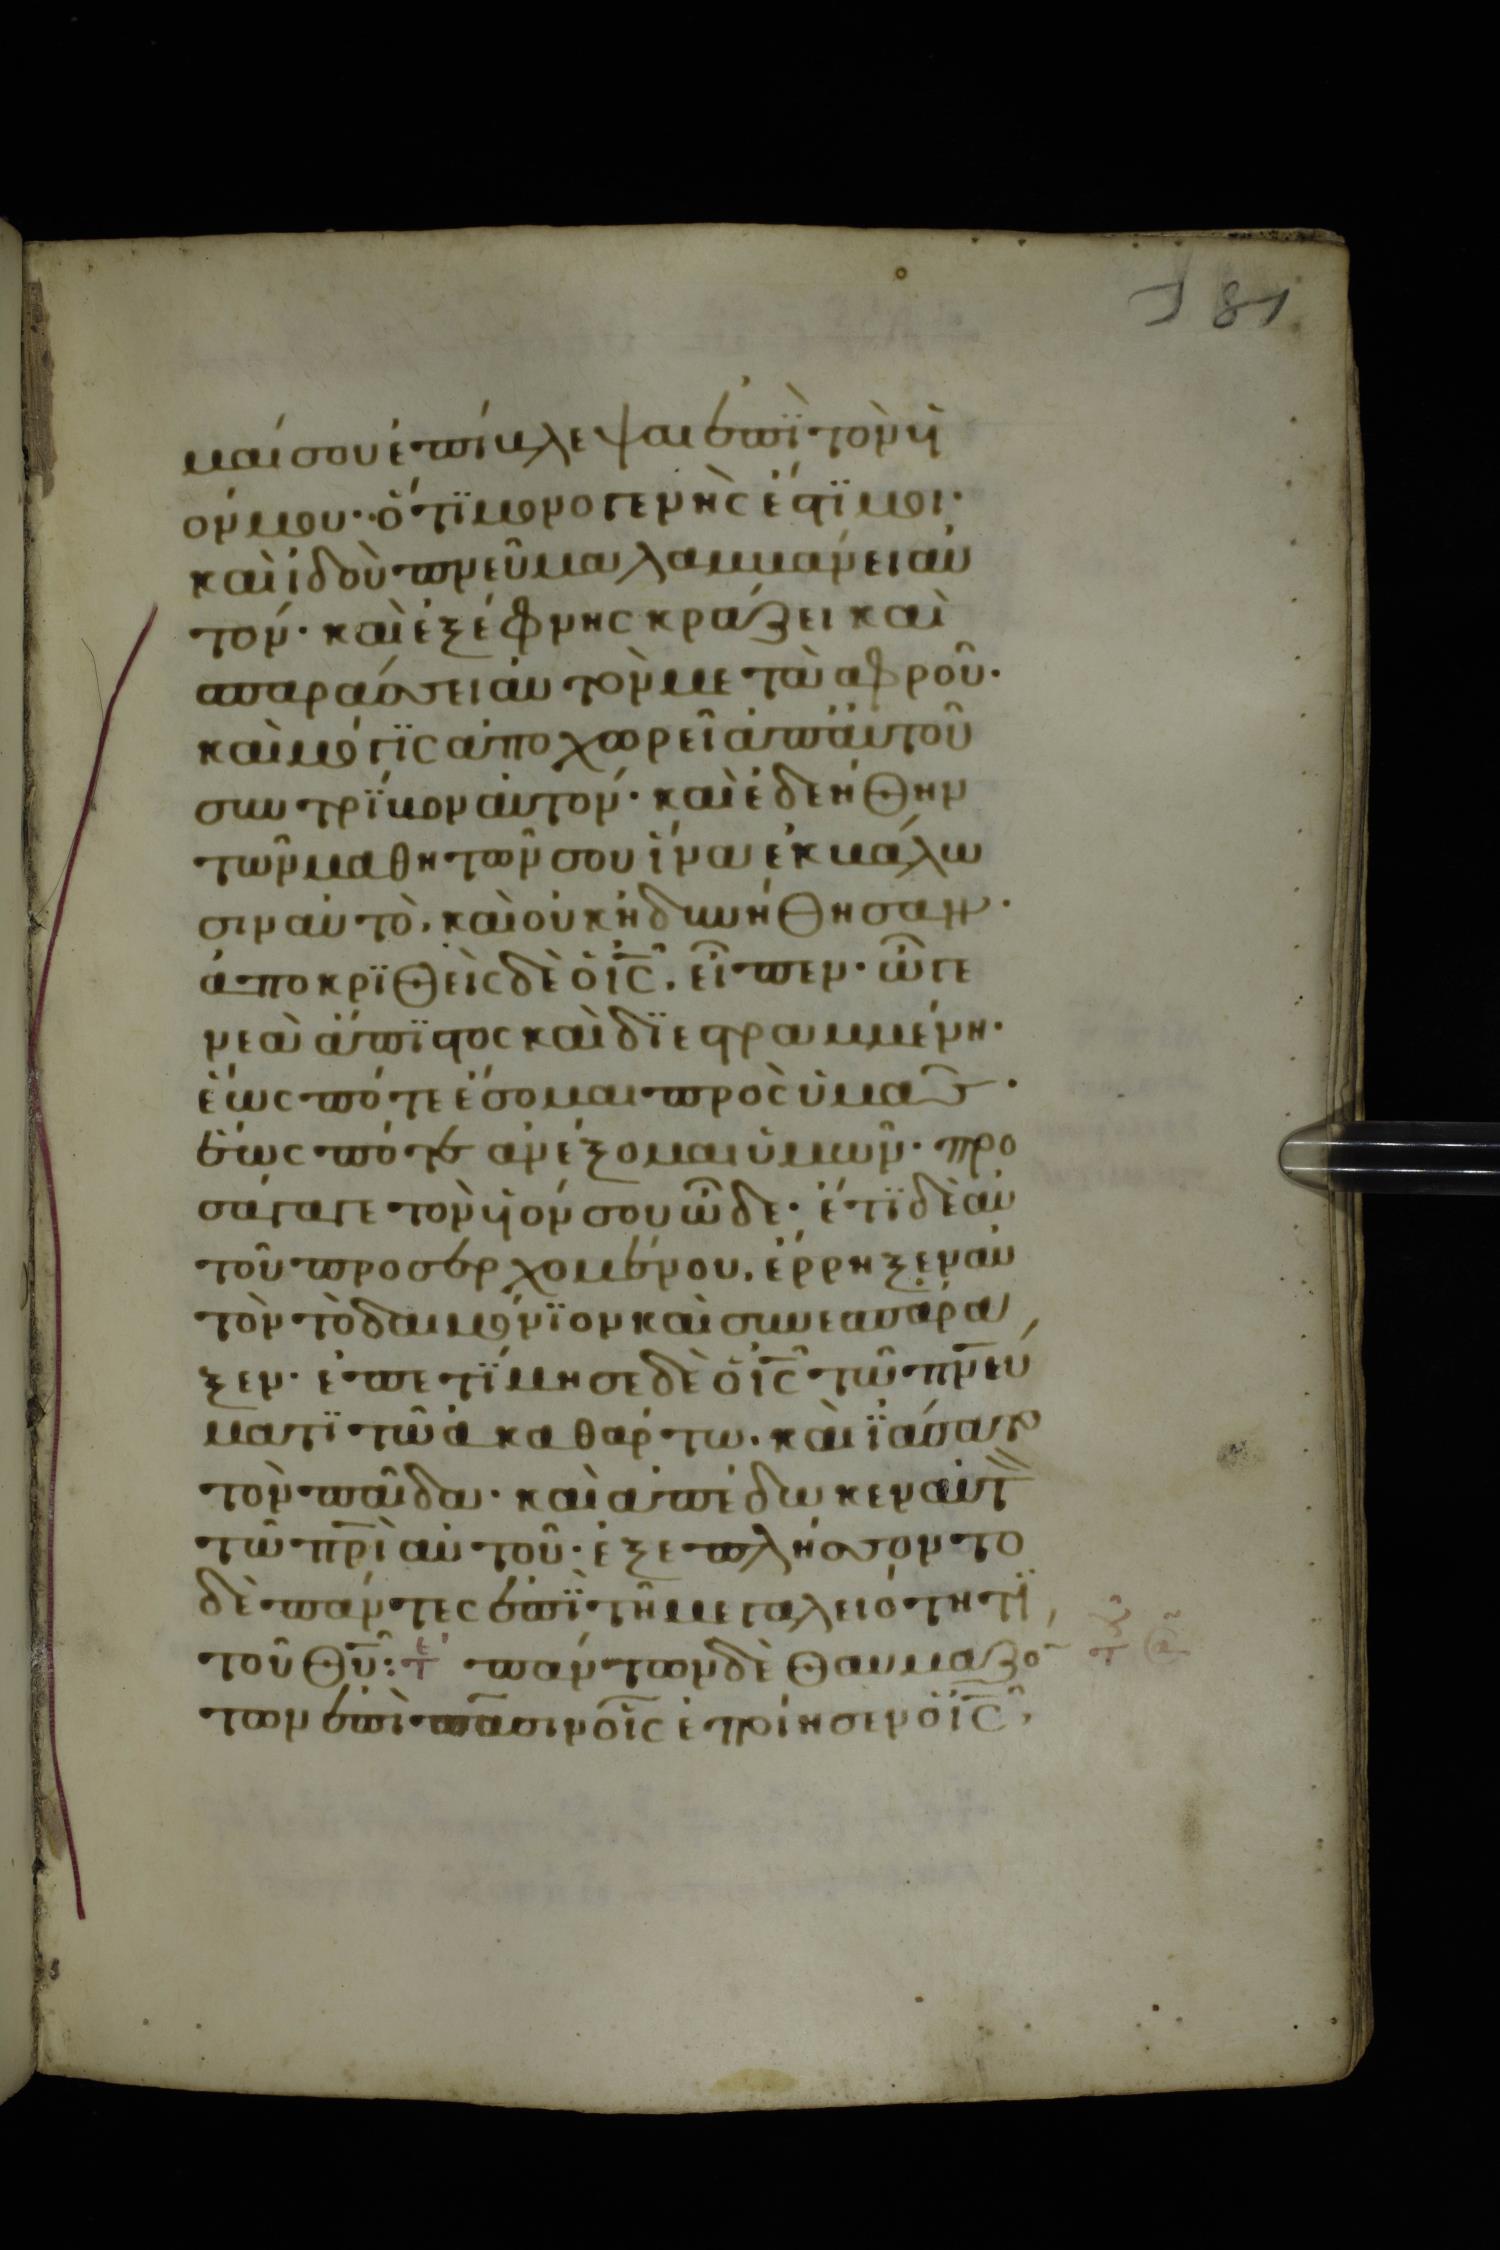 181
μαί σου ἐπίβλεψαι ἐπῒ τὸν ὑι
όν μου· ὅτϊ μονογενὴς ἐστϊ μοι·
καὶ ἰδοὺ πνεῦμα λαμβάνει αὐ
τόν· καὶ ἐξέφνης κράζει καὶ
σπαράσσει αὐτὸν μετὰ ἀφροῦ·
καὶ μόγϊς ἀποχωρεῖ ἀπ' αὐτοῦ
συντρῖβον αὐτόν· καὶ ἐδεήθην
τῶν μαθητῶν σου ἵνα ἐκβάλω
σιν αὐτὸ, καὶ οὐκ ἠδυνήθησαν·
ἀποκρϊθεὶς δὲ ὁ ι̅ς̅, εἶπεν· ὦ γε
νεὰ ἄπϊστος καὶ δϊεστραμμένη·
ἕως πότε ἔσομαι πρὸς ὑμᾶς·
ἕως πότε ἀνέξομαι ὑμῶν· προ
σάγαγε τὸν ὑιόν σου ὧδε· ἔτϊ δὲ αὐ
τοῦ προσερχομένου, ἔρρηξεν αὐ
τὸν τὸ δαιμόνϊον καὶ συνεσπάρα
ξεν· ἐπετΐμησε δὲ ὁ ι̅ς̅ τῶ πν̅εύ
ματϊ τῶ ἀκαθάρτω· καὶ ϊάσατο
τὸν παῖδα· καὶ ἀπέδωκεν αὐτ
τῶ π̅ρ̅ι̅ αὐτοῦ· ἐξεπλήσσοντο
δὲ πάντες ἐπῒ τῆ μεγαλειότητϊ
τοῦ θ̅υ̅: τε πάντων δὲ θαυμαζό
των ἐπὶ πᾶσιν οἷς ἐποίησεν ὁ ι̅ς̅,